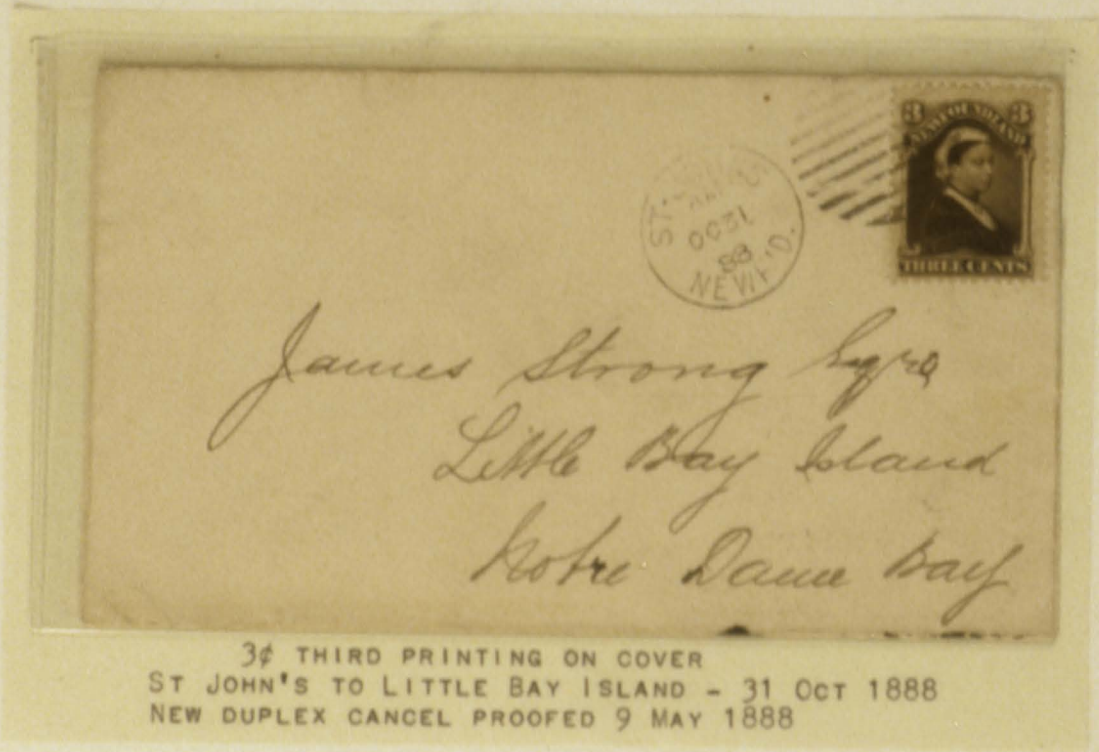 3 3
NEWFOUNDLAND
THREE CENTS
ST.
OC 31
88
NEWF'D.
James Strong Esqre
Little Bay Island
Notre Dame Bay
3¢ THIRD PRINTING ON COVER
ST JOHN'S TO LITTLE BAY ISLAND - 31 OCT 1888
NEW DUPLEX CANCEL PROOFED 9 MAY 1888